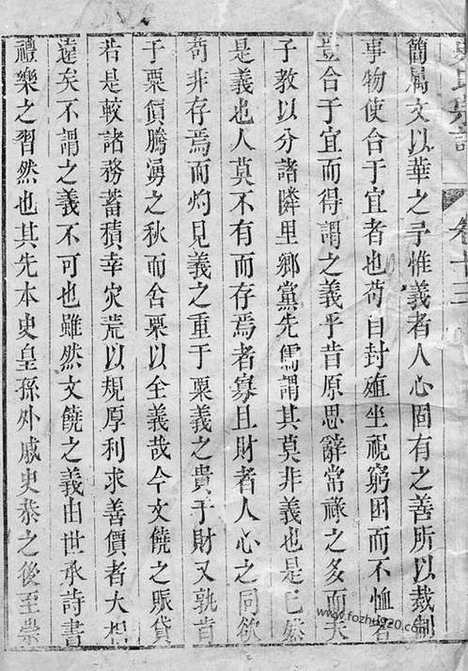 卷十三
簡屬文以華之予惟義者人心固有之善所以裁制
事物使合于宜者也苟自封殖坐視窮困而不恤者
豈合于宜而得謂之義乎昔原思辭常祿之多而夫
子教以分諸隣里鄉黨先儒謂其莫非義也是已然
是義也人莫不有而存焉者寡且財者人心之同欲
苟非存焉而灼見義之重于粟義之貴于財又孰肯
于粟價騰湧之秋而舍粟以全義哉今文饒之賑貸
若是較諸務蓄積幸灾荒以規厚利求善價者大相
遠矣不謂之義不可也雖然文饒之義由世承詩書
禮樂之習然也其先本史皇孫外戚史恭之後至崇
www.fozhu920.com